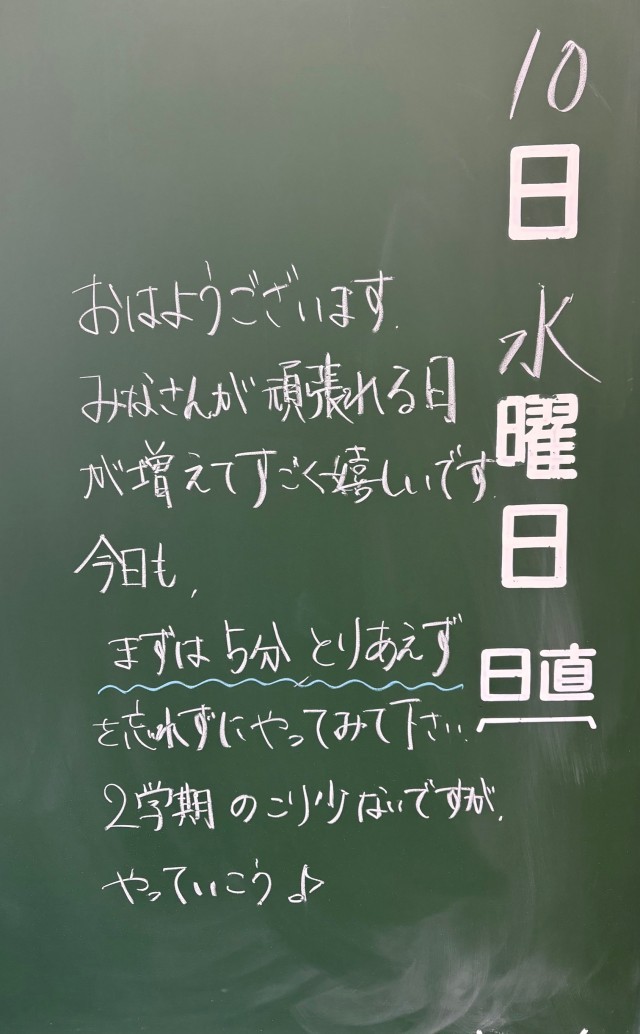 10日 水曜日
日直
おはようございます.
みなさんが頑張れる日
が増えてすごく嬉しいです
今日も,
まずは5分 とりあえず
を忘れずにやってみて下さい.
2学期 のこり少ないですが,
やっていこう♪